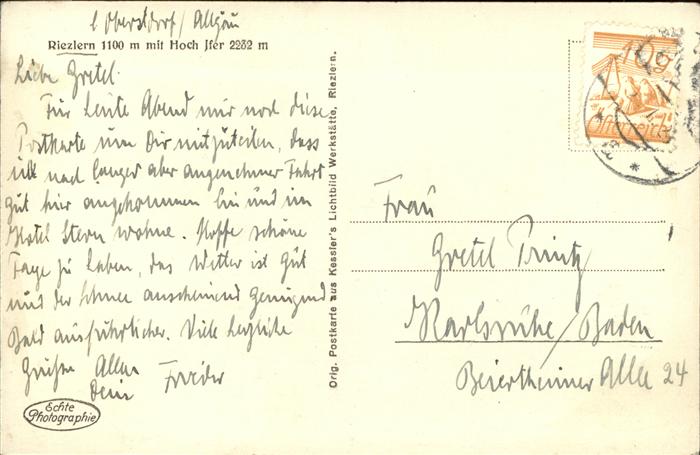 b/ Oberstdorf / Allgäu
Riezlern 1100 m mit Hoch Jfer 2232 m
Liebe Gretel.
Für heute Abend nur noch diese
Postkarte um Dir mitzuteilen, dass
ich nach langer aber angenehmer Fahrt
gut hier angekommen bin und im
Hotel Stern wohne. Hoffe schöne
Tage zu haben, das Wetter ist gut
und der Schnee anscheinend genügend
Bald ausführlicher. Viele herzliche
Grüsse Allen
Dein Frieder
Echte
Photographie
Orig. Postkarte aus Kessler's Lichtbild Werkstätte, Riezlern.
10g
Österreich
Frau
Gretel Printz
Karlsruhe / Baden
Beiertheimer Allee 24